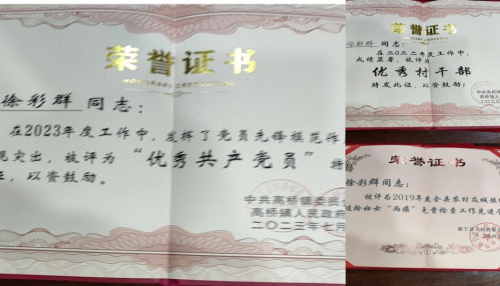 荣誉证书
徐彩群 同志：
在2023年度工作中，发挥了党员先锋模范作
现突出，被评为“优秀共产党员”特
以资鼓励。
中共高桥镇委员会
高桥镇人民政府
二〇二三年七月
荣誉证书
徐彩群 同志：
在二〇二二年度工作中，
成绩显著，被评为
优秀村干部
特发此证，以资鼓励！
中共高桥
高桥镇人
二〇二三
荣誉证书
徐彩群同志：
被评为2019年度全县农村及城镇
适龄妇女“两癌”免费检查工作先进